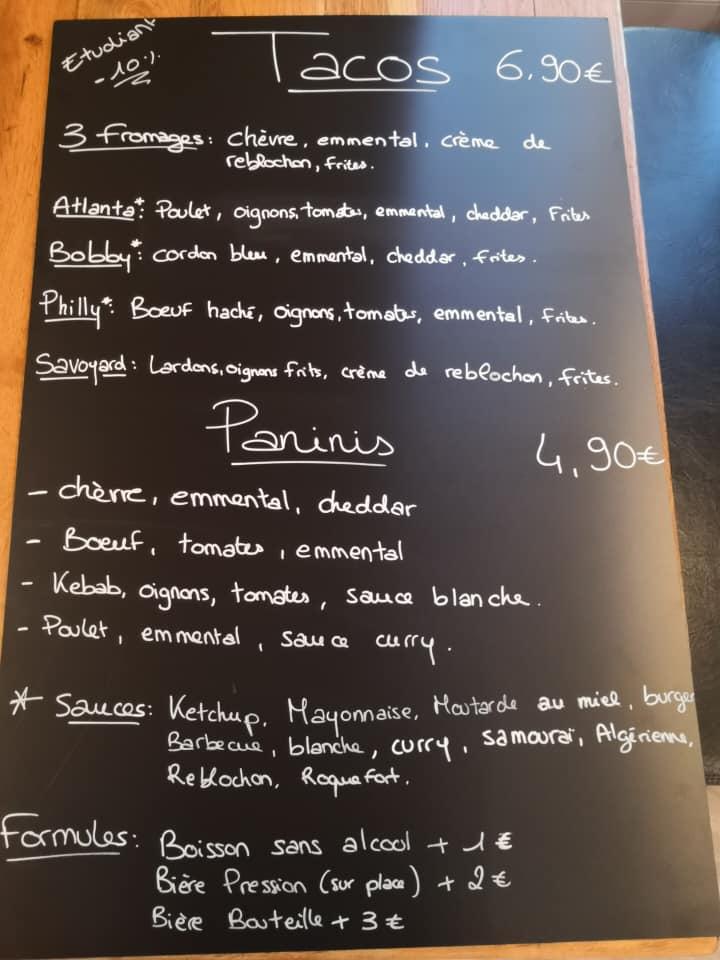 Etudiant
- 10%
Tacos 6.90€
3 Fromages: chèvre, emmental, crème de
reblochon, frites.
Atlanta*: Poulet, oignons, tomates, emmental, cheddar, Frites
Bobby*: cordon bleu, emmental, cheddar, frites.
Philly*: Boeuf haché, oignons, tomates, emmental, frites.
Savoyard: Lardons, oignons frits, crème de reblochon, frites.
Paninis 4,90€
- chèvre, emmental, cheddar
- Boeuf, tomates, emmental
- Kebab, oignons, tomates, sauce blanche.
- Poulet, emmental, sauce curry.
* Sauces: Ketchup, Mayonnaise, Moutarde au miel, burger
Barbecue, blanche, curry, samouraï, Algérienne,
Reblochon, Roquefort.
Formules: Boisson sans alcool + 1€
Bière Pression (sur place) + 2€
Bière Bouteille + 3€